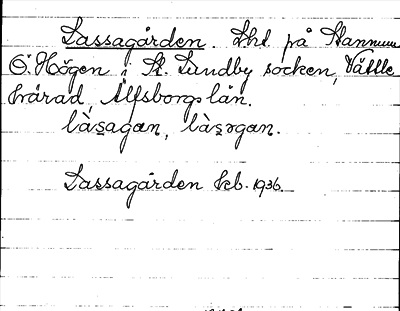 Lassagården. Lht på Stannum
Ö. Högen i St. Lundby socken, Vättle
härad, Älfsborgs län.
làs̱agan, làs̱ɘgan.
Lassagården kb. 1936.